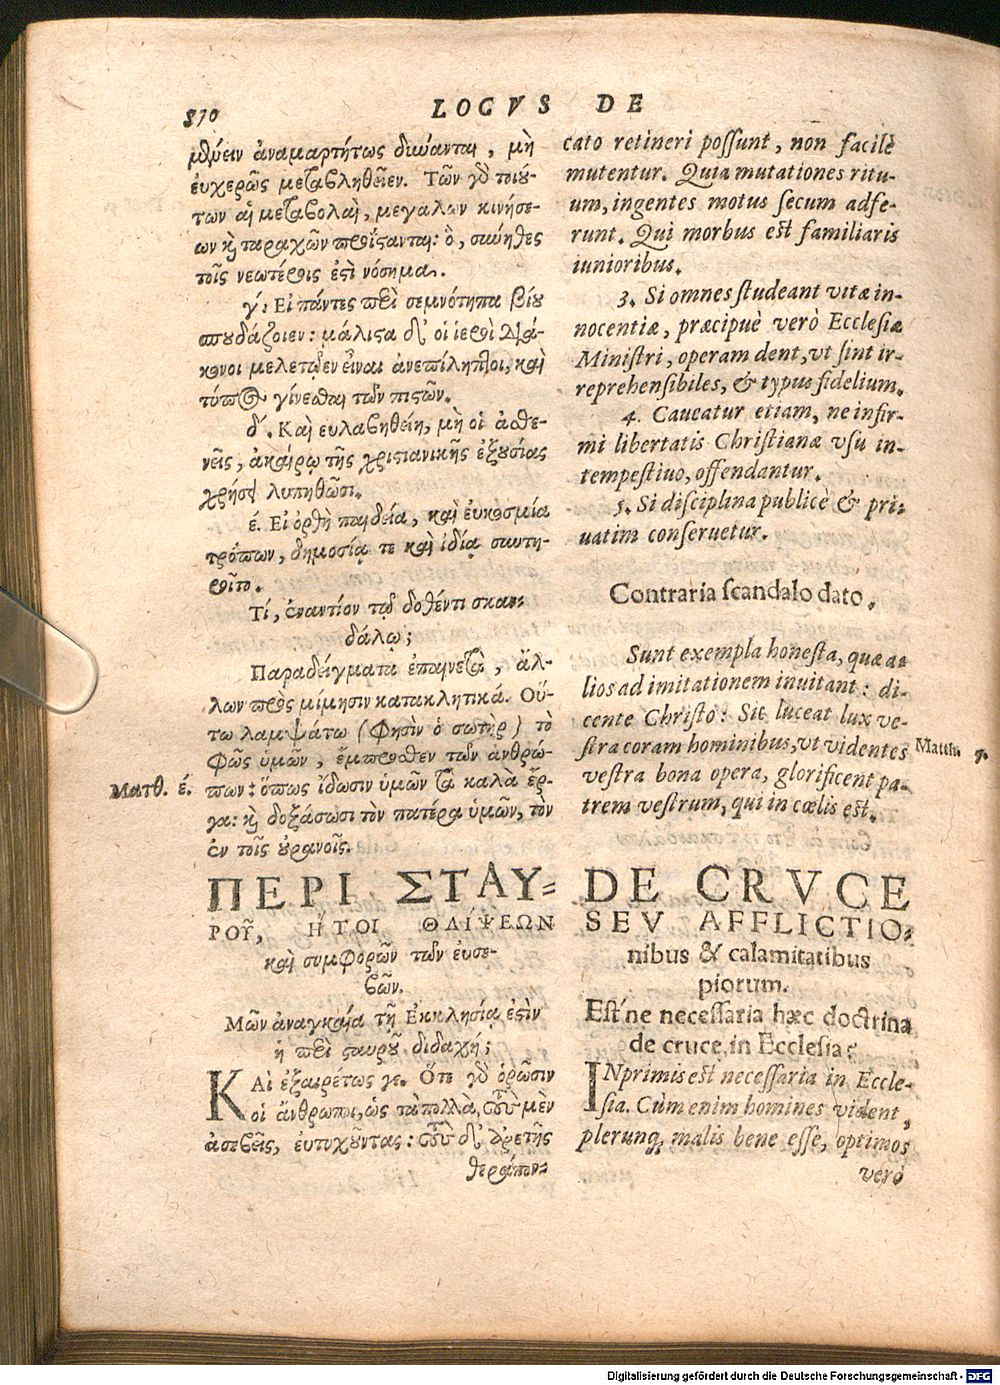 570
LOCVS DE
μένειν ἀναμαρτήτως δύνανται, μὴ
εὐχερῶς μεταβληθεῖεν. Τῶν γὸ τοιού-
των αἱ μεταβολαὶ, μεγάλων κινήσε-
ων καὶ ταραχῶν προΐστανται: ὃ, σύνηθες
τοῖς νεωτέροις ἐστὶ νόσημα.
γ΄. Εἰ πάντες περὶ σεμνότητα βίου
σπουδάζοιεν: μάλιστα δὲ οἱ ἱεροὶ διά-
κονοι μελετῷεν εἶναι ἀνεπίληπτοι, καὶ
τύπος γίνεσθαι τῶν πιστῶν.
δ΄. Καὶ εὐλαβηθείη, μὴ οἱ ἀσθε-
νεῖς, ἀκαίρῳ τῆς χριστιανικῆς ἐξουσίας
χρήσει λυπηθῶσι.
έ. Εἰ ὀρθὴ παιδεία, καὶ εὐκοσμία
τρόπων, δημοσίᾳ τε καὶ ἰδίᾳ συντη-
ροῖτο.
Τί, ἐναντίον τῷ δοθέντι σκαν-
δάλῳ;
Παραδείγματα ἐπαινετὰ, ἄλ-
λων πρὸς μίμησιν κατακλητικά. Οὕ-
τω λαμψάτω (φησὶν ὁ σωτὴρ) τὸ
φῶς ὑμῶν, ἔμπροσθεν τῶν ἀνθρώ-
Ματθ. έ.
πων: ὅπως ἴδωσιν ὑμῶν τὰ καλὰ ἔρ-
γα: καὶ δοξάσωσι τὸν πατέρα ὑμῶν, τὸν
ἐν τοῖς οὐρανοῖς.
ΠΕΡΙ ΣΤΑΥ-
ΡΟΥ͂, ἬΤΟΙ ΘΛΊΨΕΩΝ
καὶ συμφορῶν τῶν εὐσε-
βῶν.
Μῶν ἀναγκαία τῇ Ἐκκλησίᾳ ἐστὶν
ἡ περὶ σταυροῦ διδαχή;
ΚΑὶ ἐξαιρέτως γε. Ὅτε γὸ ὁρῶσιν
οἱ ἄνθρωποι, ὡς τὰ πολλὰ, τοὺς μὲν
ἀσεβεῖς, εὐτυχοῦντας: τοὺς δ' ἀρετῆς
θεράπον-
cato retineri possunt, non facilè
mutentur. Quia mutationes ritu-
um, ingentes motus secum adfe-
runt. Qui morbus est familiaris
iunioribus.
3. Si omnes studeant vitæ in-
nocentiæ, præcipuè verò Ecclesiæ
Ministri, operam dent, vt sint ir-
reprehensibiles, & typus fidelium.
4. Caueatur etiam, ne infir-
mi libertatis Christianæ vsu in-
tempestiuo, offendantur.
5. Si disciplina publicè & pri-
uatim conseruetur.
Contraria scandalo dato.
Sunt exempla honesta, quæ a-
lios ad imitationem inuitant: di-
cente Christo: Sic luceat lux ve-
stra coram hominibus, vt videntes
Matth. 5.
vestra bona opera, glorificent pa-
trem vestrum, qui in cœlis est.
DE CRVCE
SEV AFFLICTIO-
nibus & calamitatibus
piorum.
Est´ne necessaria hæc doctrina
de cruce, in Ecclesia?
INprimis est necessaria in Eccle-
sia. Cùm enim homines vident,
plerunq; malis bene esse, optimos
verò
Digitalisierung gefördert durch die Deutsche Forschungsgemeinschaft - DFG